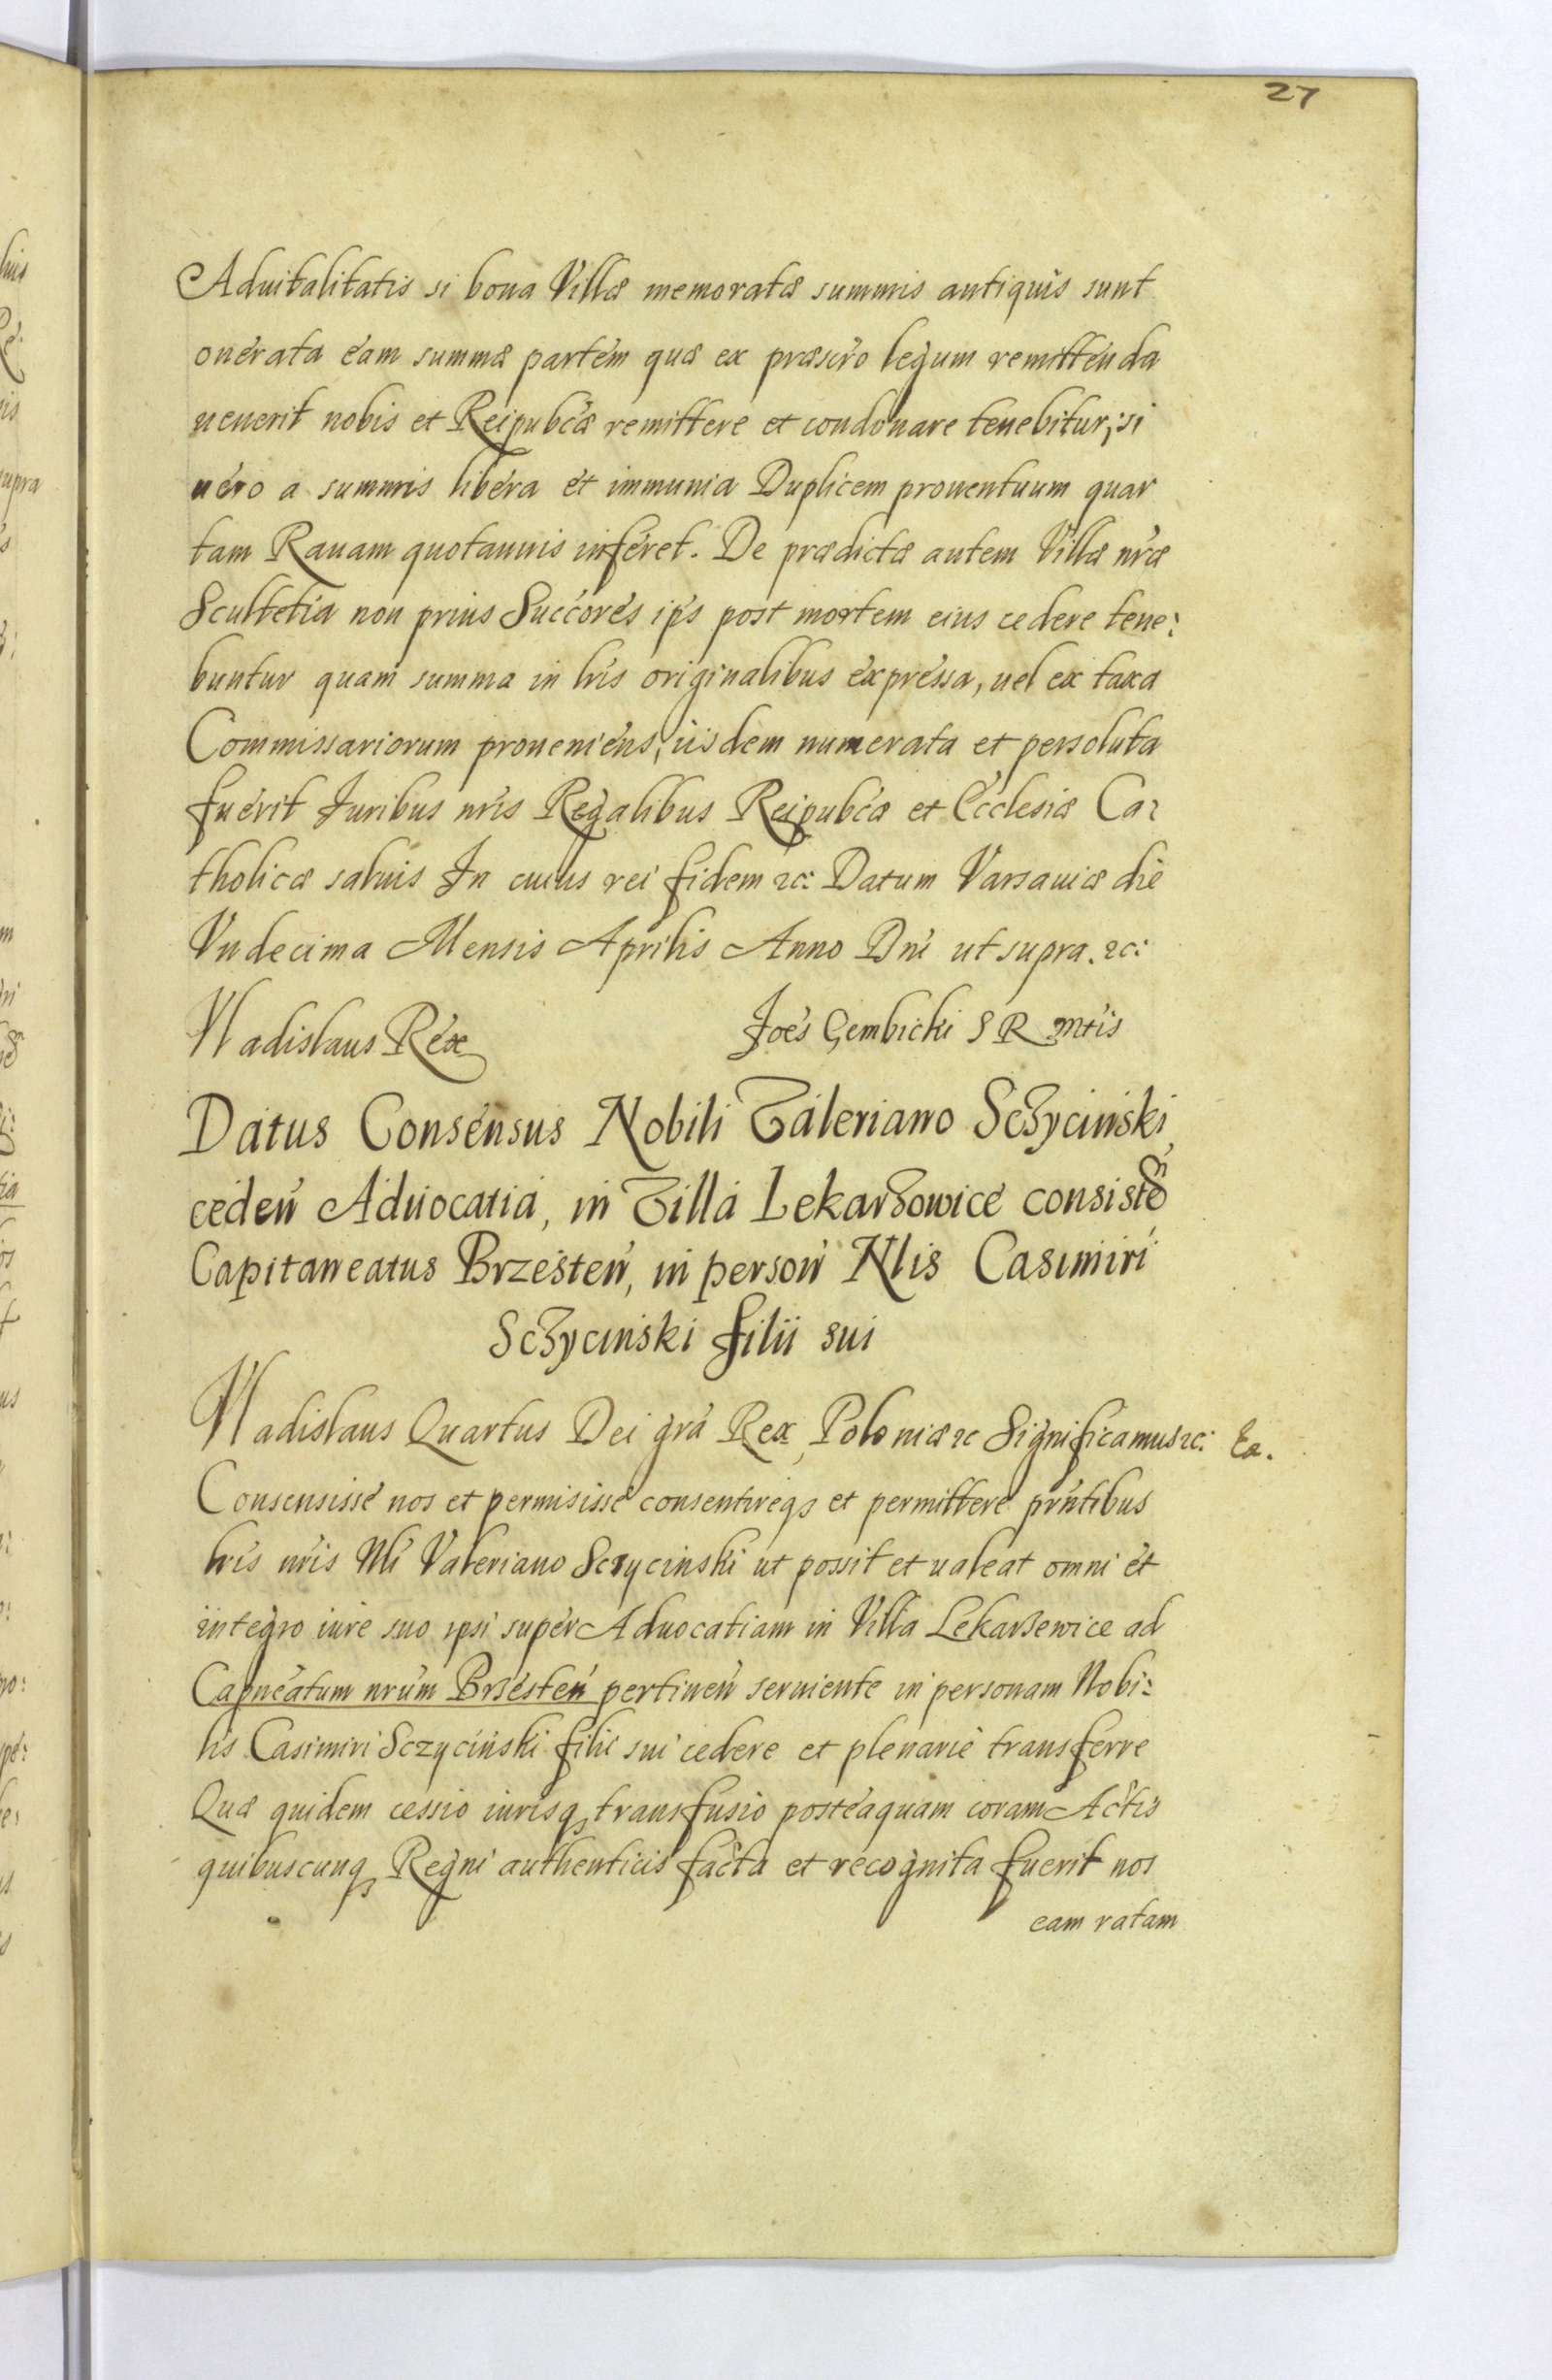 27
Aduitalitatis si bona Villæ memoratæ summis antiquis sunt
onérata éam summæ partém quæ ex præscro legum remitténda
uenerit nobis et Reipubcæ remittere et condonare tenebitur, si
uéro a summis libéra ét immunia Duplicem prouentuum quar
tam Rauam quotannis inféret. De prædictæ autem Villæ nræ
Scultetia non prius Succores ips post mortem eius cedere tene:
buntur quam summa in lris originalibus expressa, uel ex taxa
Commissariorum proueniens, iisdem numerata et persoluta
fuérit Juribus nris Regalibus Reipubcæ et Ecclesiæ Ca:
tholicæ saluis In cuius rei fidem &c: Datum Varsauiæ die
Vndecima Mensis Aprilis Anno Dni ut supra. &c:
Vladislaus Rex Joés Gembicki S R Mtis
Datus Consensus Nobili Valeriano Sczycinski
ceden Aduocatia, in Villa Lekarzowice consisten
Capitaneatus Brzesten, in person Nlis Casimiri
Sczycinski filii sui
Vladislaus Quartus Dei gra Rex Poloniæ &c Significamus &c: Ea.
Consensisse nos et permisisse consentireq3 et permittere prntibus
lris nris Nli Valeriano Sczycinski ut possit et ualeat omni ét
integro iure suo ipsi super Aduocatiam in Villa Lekarzewice ad
Capneatum nrum Brzesten pertinen seruiente in personam Nobi:
lis Casimiri Sczycinski filii sui cedere et plenarie transferre
Quæ quidem cessio iurisq3 transfusio postéaquam coram Actis
quibuscunq3 Regni authenticis facta et recognita fuerit nos
eam ratam